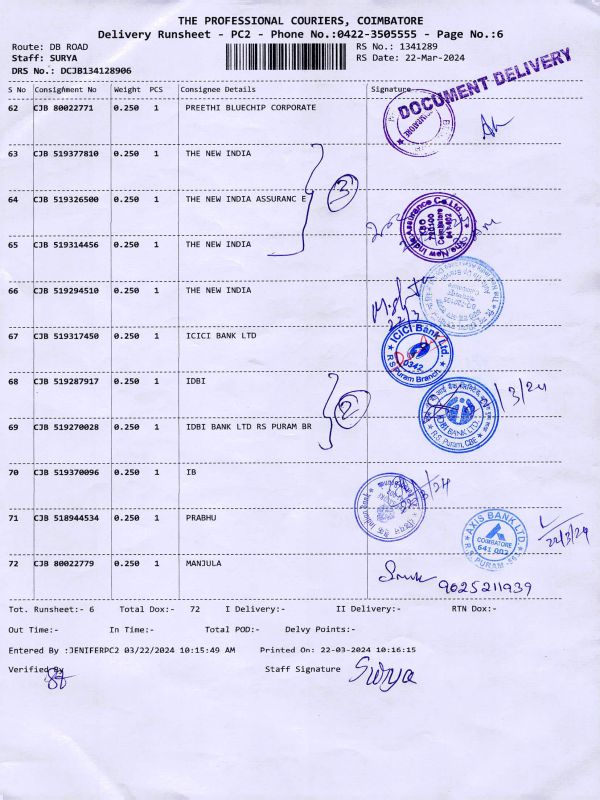 THE PROFESSIONAL COURIERS, COIMBATORE
Delivery Runsheet - PC2 - Phone No.:0422-3505555 - Page No.:6
Route: DB ROAD RS No.: 1341289
Staff: SURYA RS Date: 22-Mar-2024
DRS No.: DCJB134128906
DOCUMENT DELIVERY
S No Consignment No Weight PCS Consignee Details Signature
62 CJB 80022771 0.250 1 PREETHI BLUECHIP CORPORATE
63 CJB 519377810 0.250 1 THE NEW INDIA
3
64 CJB 519326500 0.250 1 THE NEW INDIA ASSURANC E
The New India Assurance Co. Ltd.
KBO
720100
Coimbatore
641 002
65 CJB 519314456 0.250 1 THE NEW INDIA
66 CJB 519294510 0.250 1 THE NEW INDIA
22/3
67 CJB 519317450 0.250 1 ICICI BANK LTD
ICICI Bank Ltd.
0342
R S Puram Branch
68 CJB 519287917 0.250 1 IDBI
2
/3/24
IDBI BANK LTD
R.S. Puram, CBE
69 CJB 519270028 0.250 1 IDBI BANK LTD RS PURAM BR
70 CJB 519370096 0.250 1 IB
Indian Bank
71 CJB 518944534 0.250 1 PRABHU
AXIS BANK LTD.
COIMBATORE
641 002
R.S. PURAM
22/3/24
72 CJB 80022779 0.250 1 MANJULA
9025211939
Tot. Runsheet:- 6 Total Dox:- 72 I Delivery:- II Delivery:- RTN Dox:-
Out Time:- In Time:- Total POD:- Delvy Points:-
Entered By :JENIFERPC2 03/22/2024 10:15:49 AM Printed On: 22-03-2024 10:16:15
Verified By Staff Signature Surya